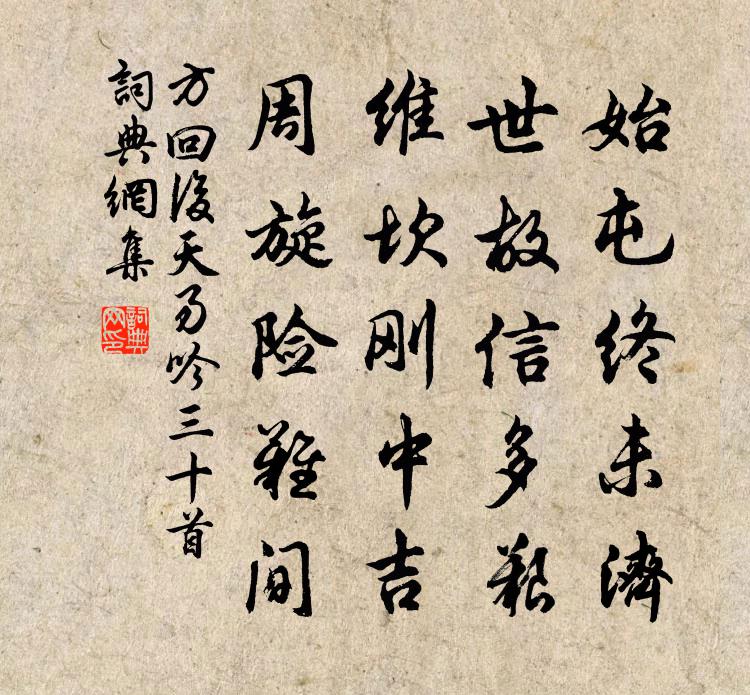 始屯終未濟
世故信多艱
維坎刚中吉
周旋险難间
方回後天易吟三十首
詞典網集
詞典網印